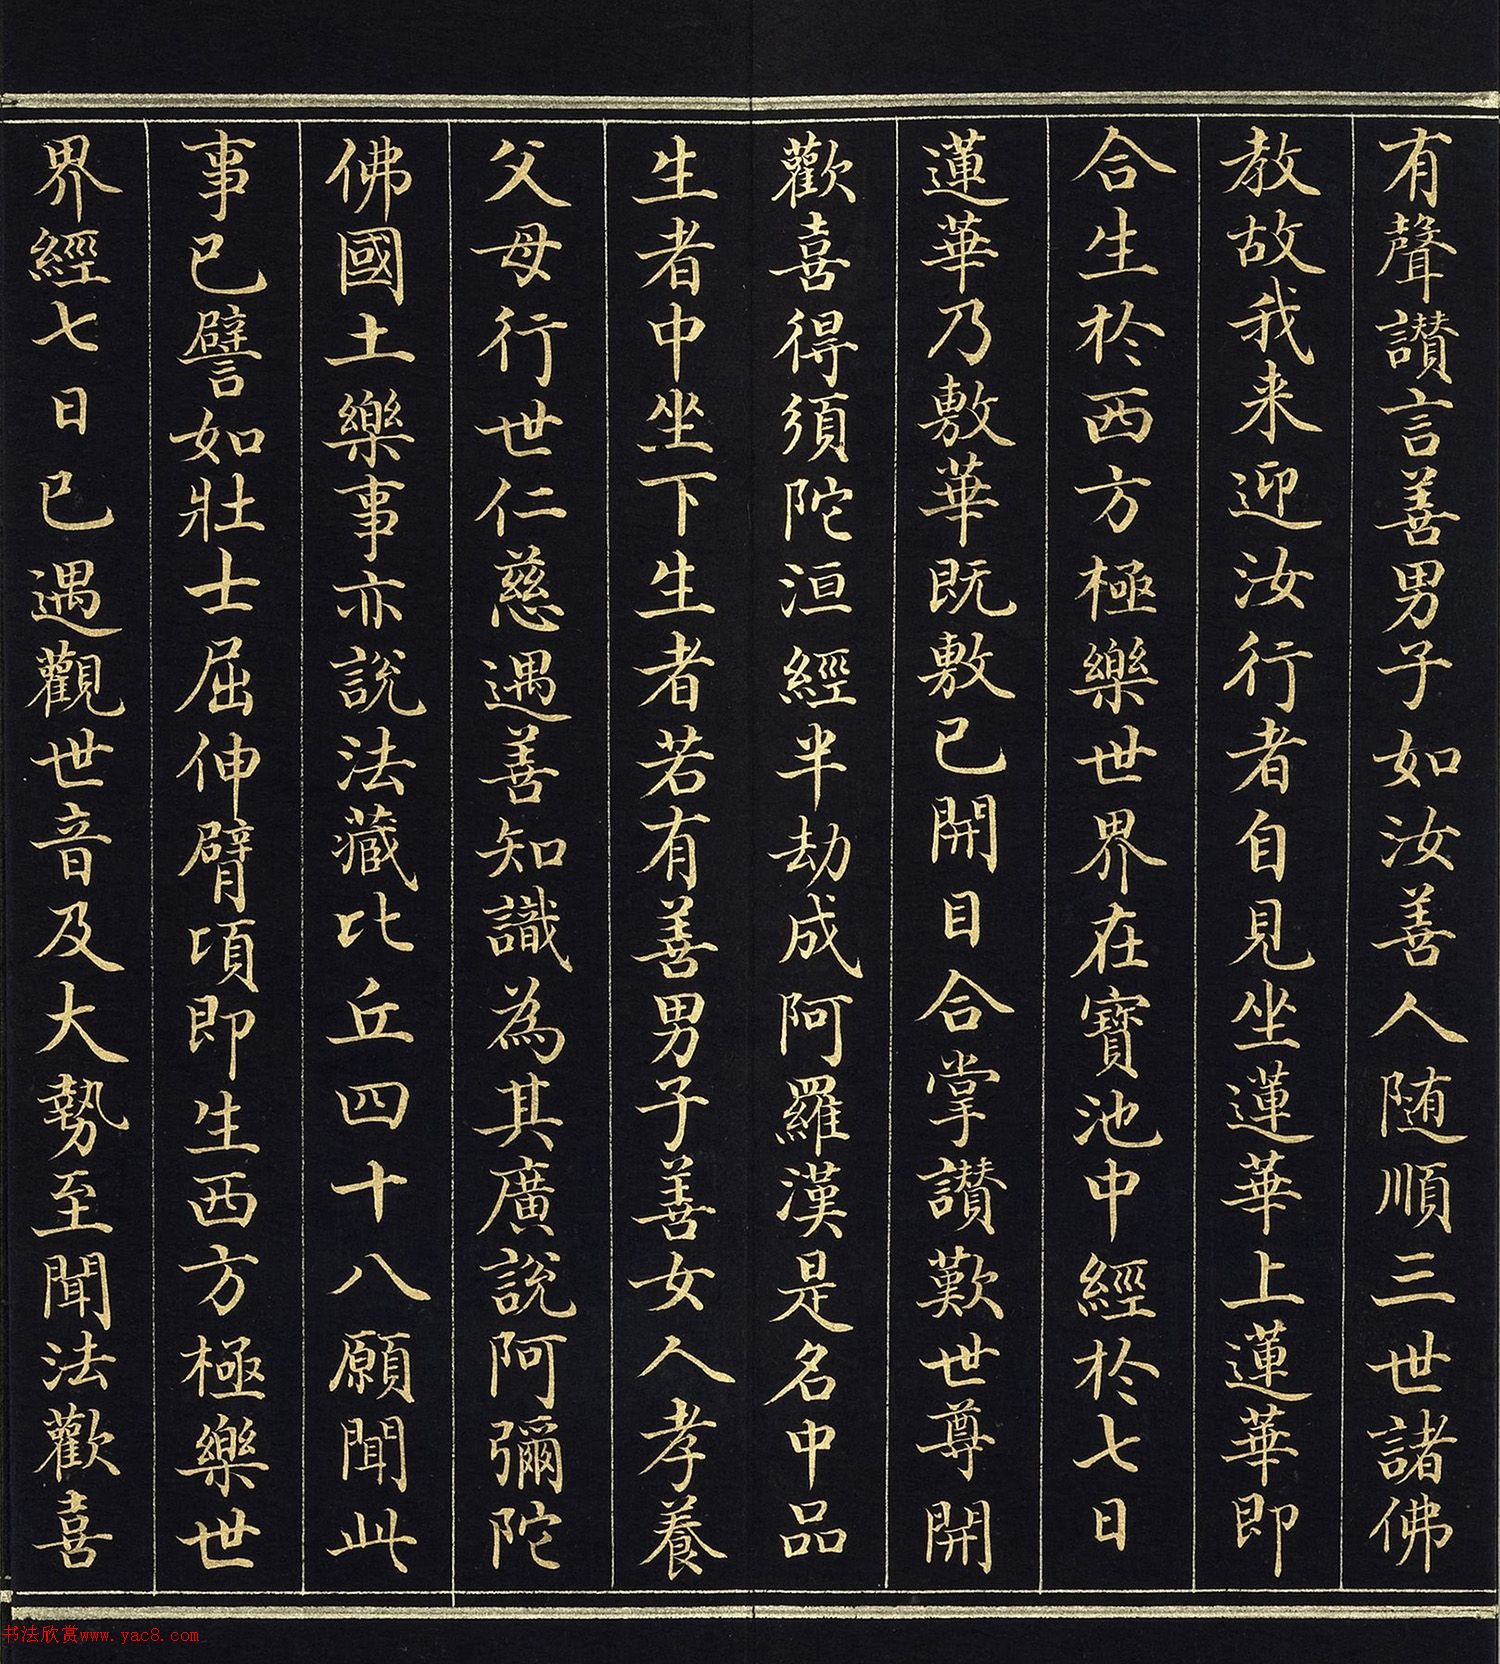 有聲讃言善男子如汝善人随順三世諸佛
教故我来迎汝行者自見坐蓮華上蓮華即
合生於西方極樂世界在寶池中經於七日
蓮華乃敷華既敷已開目合掌讃歎世尊開
歡喜得須陀洹經半劫成阿羅漢是名中品
生者中坐下生者若有善男子善女人孝養
父母行世仁慈遇善知識為其廣說阿彌陀
佛國土樂事亦說法藏比丘四十八願聞此
事已譬如壯士屈伸臂頃即生西方極樂世
界經七日已遇觀世音及大勢至聞法歡喜
书法欣赏www.yac8.com